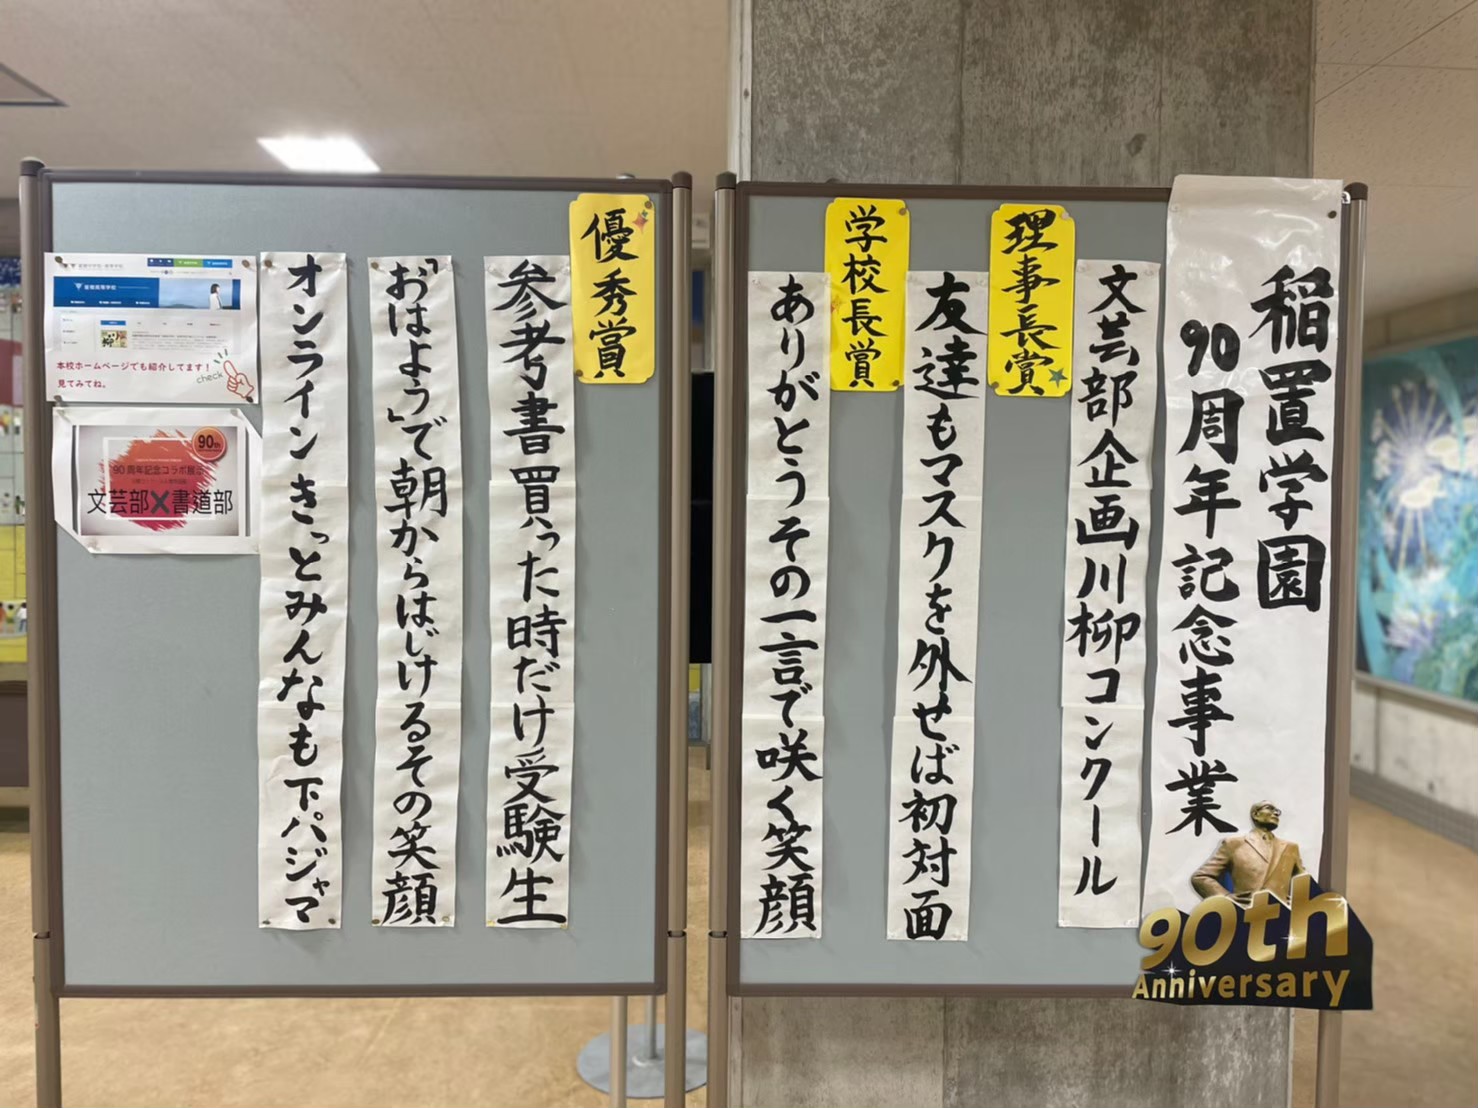 稲置学園
90周年記念事業
文芸部企画川柳コンクール
理事長賞
友達もマスクを外せば初対面
学校長賞
ありがとうその一言で咲く笑顔
90th
Anniversary
優秀賞
参考書買った時だけ受験生
「おはよう」で朝からはじけるその笑顔
オンラインきっとみんなも下パジャマ
本校ホームページでも紹介してます！
見てみてね。
check
90th
90周年記念コラボ展示
文芸部×書道部